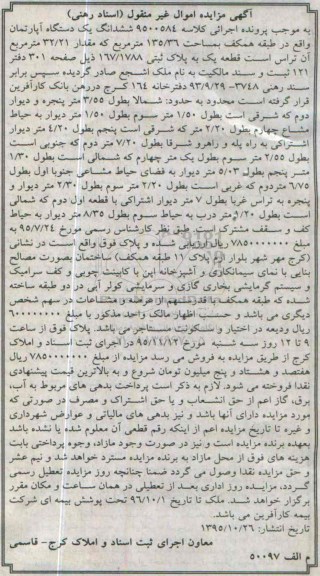 آگهی مزایده اموال غیر منقول (اسناد رهنی)
به موجب پرونده اجرائی کلاسه ۹۵۰۰۵۸۴ ششدانگ یک دستگاه آپارتمان
واقع در طبقه همکف بمساحت ۱۳۵/۳۶ مترمربع که مقدار ۳۲/۲۱ مترمربع
آن تراس است قطعه یک به پلاک ثبتی ۱۶۷/۱۷۸۸ ذیل صفحه ۳۰۱ دفتر
۱۲۱ ثبت و سند مالکیت به نام ملک اشجع صادر گردیده سپس برابر
سند رهنی ۳۷۴۸- ۹۳/۹/۲۹ دفترخانه ۱۶۴ کرج دررهن بانک کارآفرین
قرار گرفته است محدود به حدود: شمالا بطول ۳/۵۵ متر پنجره و دیوار
دوم که شرقی است بطول ۱/۵۰ متر سوم بطول ۱/۵۰ متر دیوار به حیاط
مشاع چهارم بطول ۲/۲۰ متر که شرقی است پنجم بطول ۴/۲۰ متر دیوار
اشتراکی به راه پله و راهرو شرقا بطول ۷/۲۰ متر دوم که جنوبی است
بطول ۲/۵۵ متر سوم بطول یک متر چهارم که شمالی است بطول ۱/۳۰
متر پنجم بطول ۵/۰۳ متر دیوار به فضای حیاط مشاعی جنوبا اول بطول
۶/۷۵ متردوم که غربی است بطول ۲/۲۰ متر سوم بطول ۲/۳۰ متر دیوار و
پنجره به تراس غربا بطول ۷ متر دیوار اشتراکی با قطعه اول دوم که شمالی
است بطول ۵/۲۰ متر درب به حیاط سوم بطول ۸/۳۵ متر دیوار به حیاط
کف و سقف مشترک است طبق نظر کارشناس رسمی مورخ ۹۵/۷/۲۴ به
مبلغ ۷۸۵۰۰۰۰۰۰۰ ریال ارزیابی شده و پلاک فوق واقع است در نشانی
(کرج مهر شهر بلوار ارم پلاک ۱۱ طبقه همکف) ساختمان بصورت مصالح
بنایی با نمای سیمانکاری و آشپزخانه اپن با کابینت چوبی و کف سرامیک
و سیستم گرمایشی بخاری گازی و سرمایشی کولر آبی در دو طبقه ساخته
شده که طبقه همکف با قدرالسهم از عرصه و مشاعات در سهم شخص
دیگری می باشد و حسب اظهار مالک واحد مذکور با مبلغ ۶۰۰۰۰۰۰۰۰
ریال ودیعه در اختیار و مسکونت مستاجر می باشد. پلاک فوق از ساعت
۹ تا ۱۲ روز سه شنبه مورخ ۹۵/۱۱/۱۲ در اجرای ثبت اسناد و املاک
کرج از طریق مزایده به فروش می رسد مزایده از مبلغ ۷۸۵۰۰۰۰۰۰۰ ریال
هفتصد و هشتاد و پنج میلیون تومان شروع و به بالاترین قیمت پیشنهادی
نقدا فروخته می شود. لازم به ذکر است پرداخت بدهی های مربوط به آب،
برق، گاز اعم از حق انشعاب و یا حق اشتراک و مصرف در صورتی که
مورد مزایده دارای آنها باشد و نیز بدهی های مالیاتی و عوارض شهرداری
و غیره تا تاریخ مزایده اعم از اینکه رقم قطعی آن معلوم شده یا نشده باشد
بعهده برنده مزایده است و نیز در صورت وجود مازاد، وجوه پرداختی بابت
هزینه های فوق از محل مازاد به برنده مزایده مسترد خواهد شد و نیم عشر
و حق مزایده نقدا وصول می گردد ضمنا چنانچه روز مزایده تعطیل رسمی
گردد، مزایده روز اداری بعد از تعطیلی در همان ساعت و مکان مقرر
برگزار خواهد شد. ملک تا تاریخ ۹۶/۱۰/۱ تحت پوشش بیمه ای شرکت
بیمه کارآفرین می باشد.
تاریخ انتشار: ۱۳۹۵/۱۰/۲۶
معاون اجرای ثبت اسناد و املاک کرج- قاسمی
م الف ۵۰۰۹۷